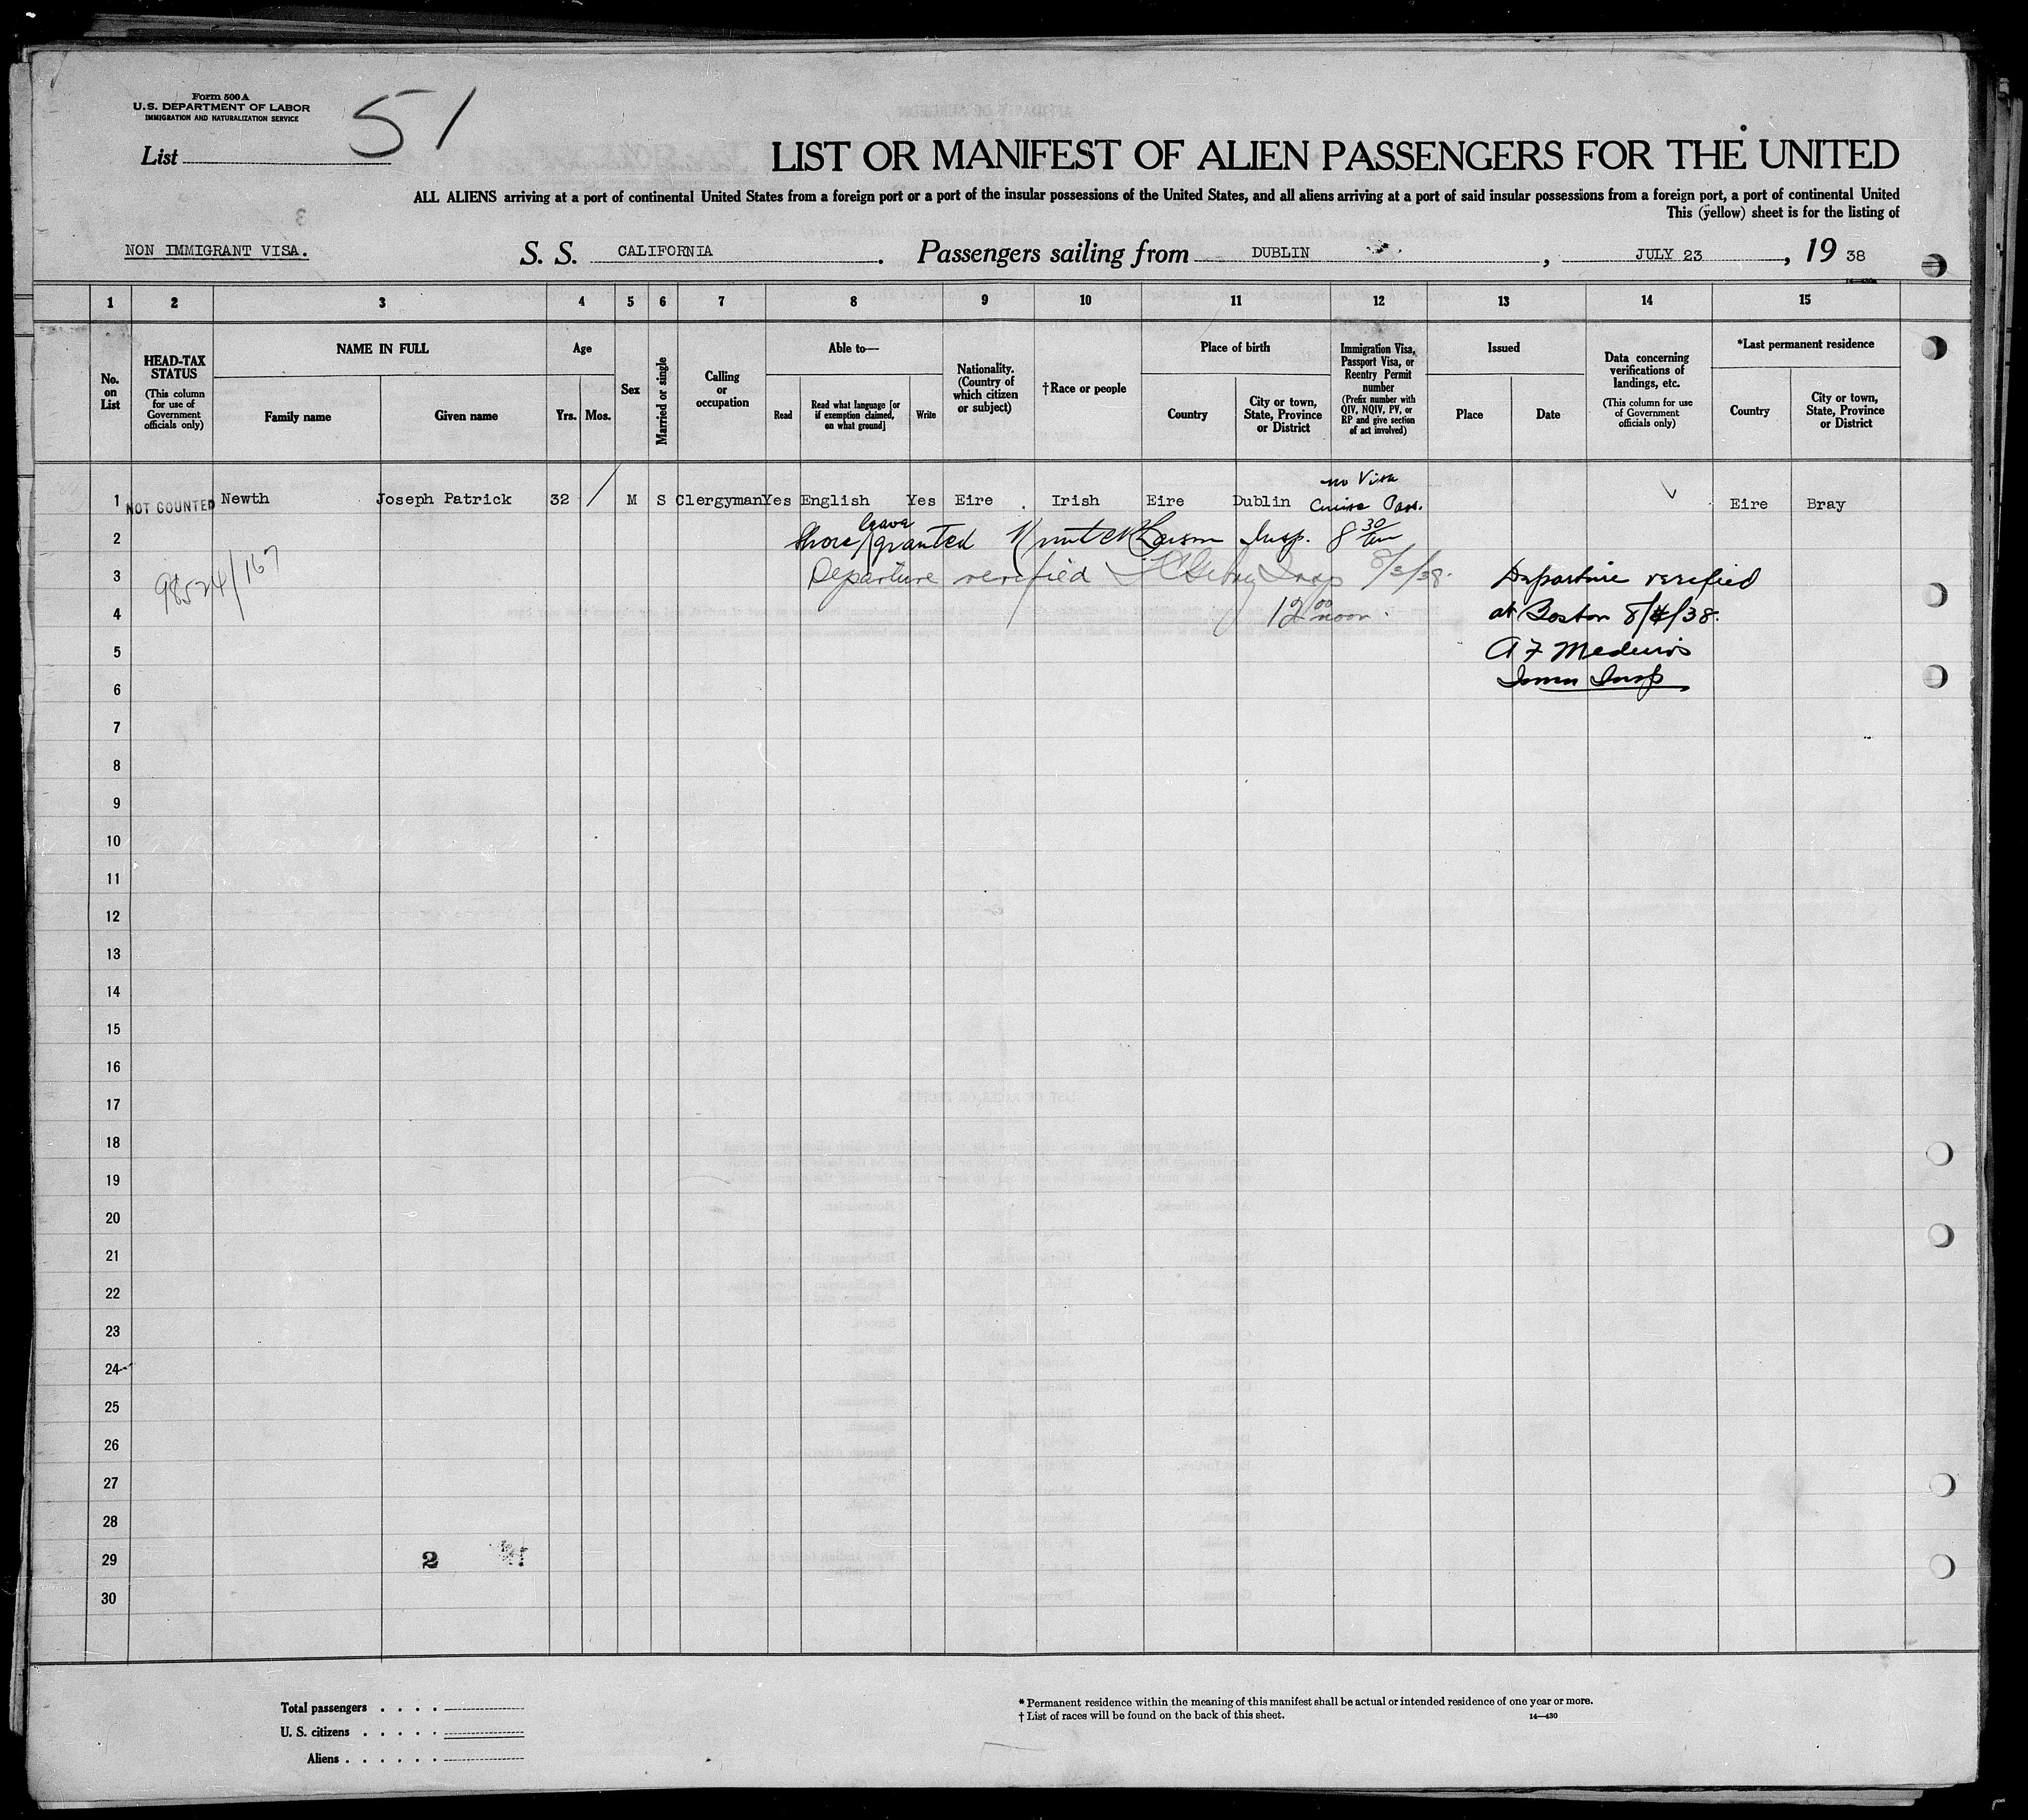 Form 500 A
U.S. DEPARTMENT OF LABOR
IMMIGRATION AND NATURALIZATION SERVICE
51
List
LIST OR MANIFEST OF ALIEN PASSENGERS FOR THE UNITED
ALL ALIENS arriving at a port of continental United States from a foreign port or a port of the insular possessions of the United States, and all aliens arriving at a port of said insular possessions from a foreign port, a port of continental United
This (yellow) sheet is for the listing of
NON IMMIGRANT VISA.
S. S. CALIFORNIA. Passengers sailing from DUBLIN, JULY 23, 19 38
1 2 3 4 5 6 7 8 9 10 11 12 13 14 15
No. on List
HEAD-TAX STATUS
(This column for use of Government officials only)
NAME IN FULL
Family name
Given name
Age
Yrs.
Mos.
Sex
Married or single
Calling or occupation
Able to—
Read
Read what language [or if exemption claimed, on what ground]
Write
Nationality. (Country of which citizen or subject)
†Race or people
Place of birth
Country
City or town, State, Province or District
Immigration Visa, Passport Visa, or Reentry Permit number
(Prefix number with QIV, NQIV, PV, or RP and give section of act involved)
Issued
Place
Date
Data concerning verifications of landings, etc.
(This column for use of Government officials only)
*Last permanent residence
Country
City or town, State, Province or District
no Visa
1 NOT COUNTED Newth Joseph Patrick 32 / M S Clergyman Yes English Yes Eire Irish Eire Dublin Cruise Pass. Eire Bray
2 Shore leave granted Insp. 8 30 am
3 98524/167 Departure verified Insp 8/3/38. Departure verified
4 12 00 noon. at Boston 8/4/38.
5 A F Medeiros
6 Immn Insp
7
8
9
10
11
12
13
14
15
16
17
18
19
20
21
22
23
24
25
26
27
28
29 2
30
Total passengers . . . .
U. S. citizens . . . . .
Aliens . . . . . .
* Permanent residence within the meaning of this manifest shall be actual or intended residence of one year or more.
† List of races will be found on the back of this sheet.
14—430